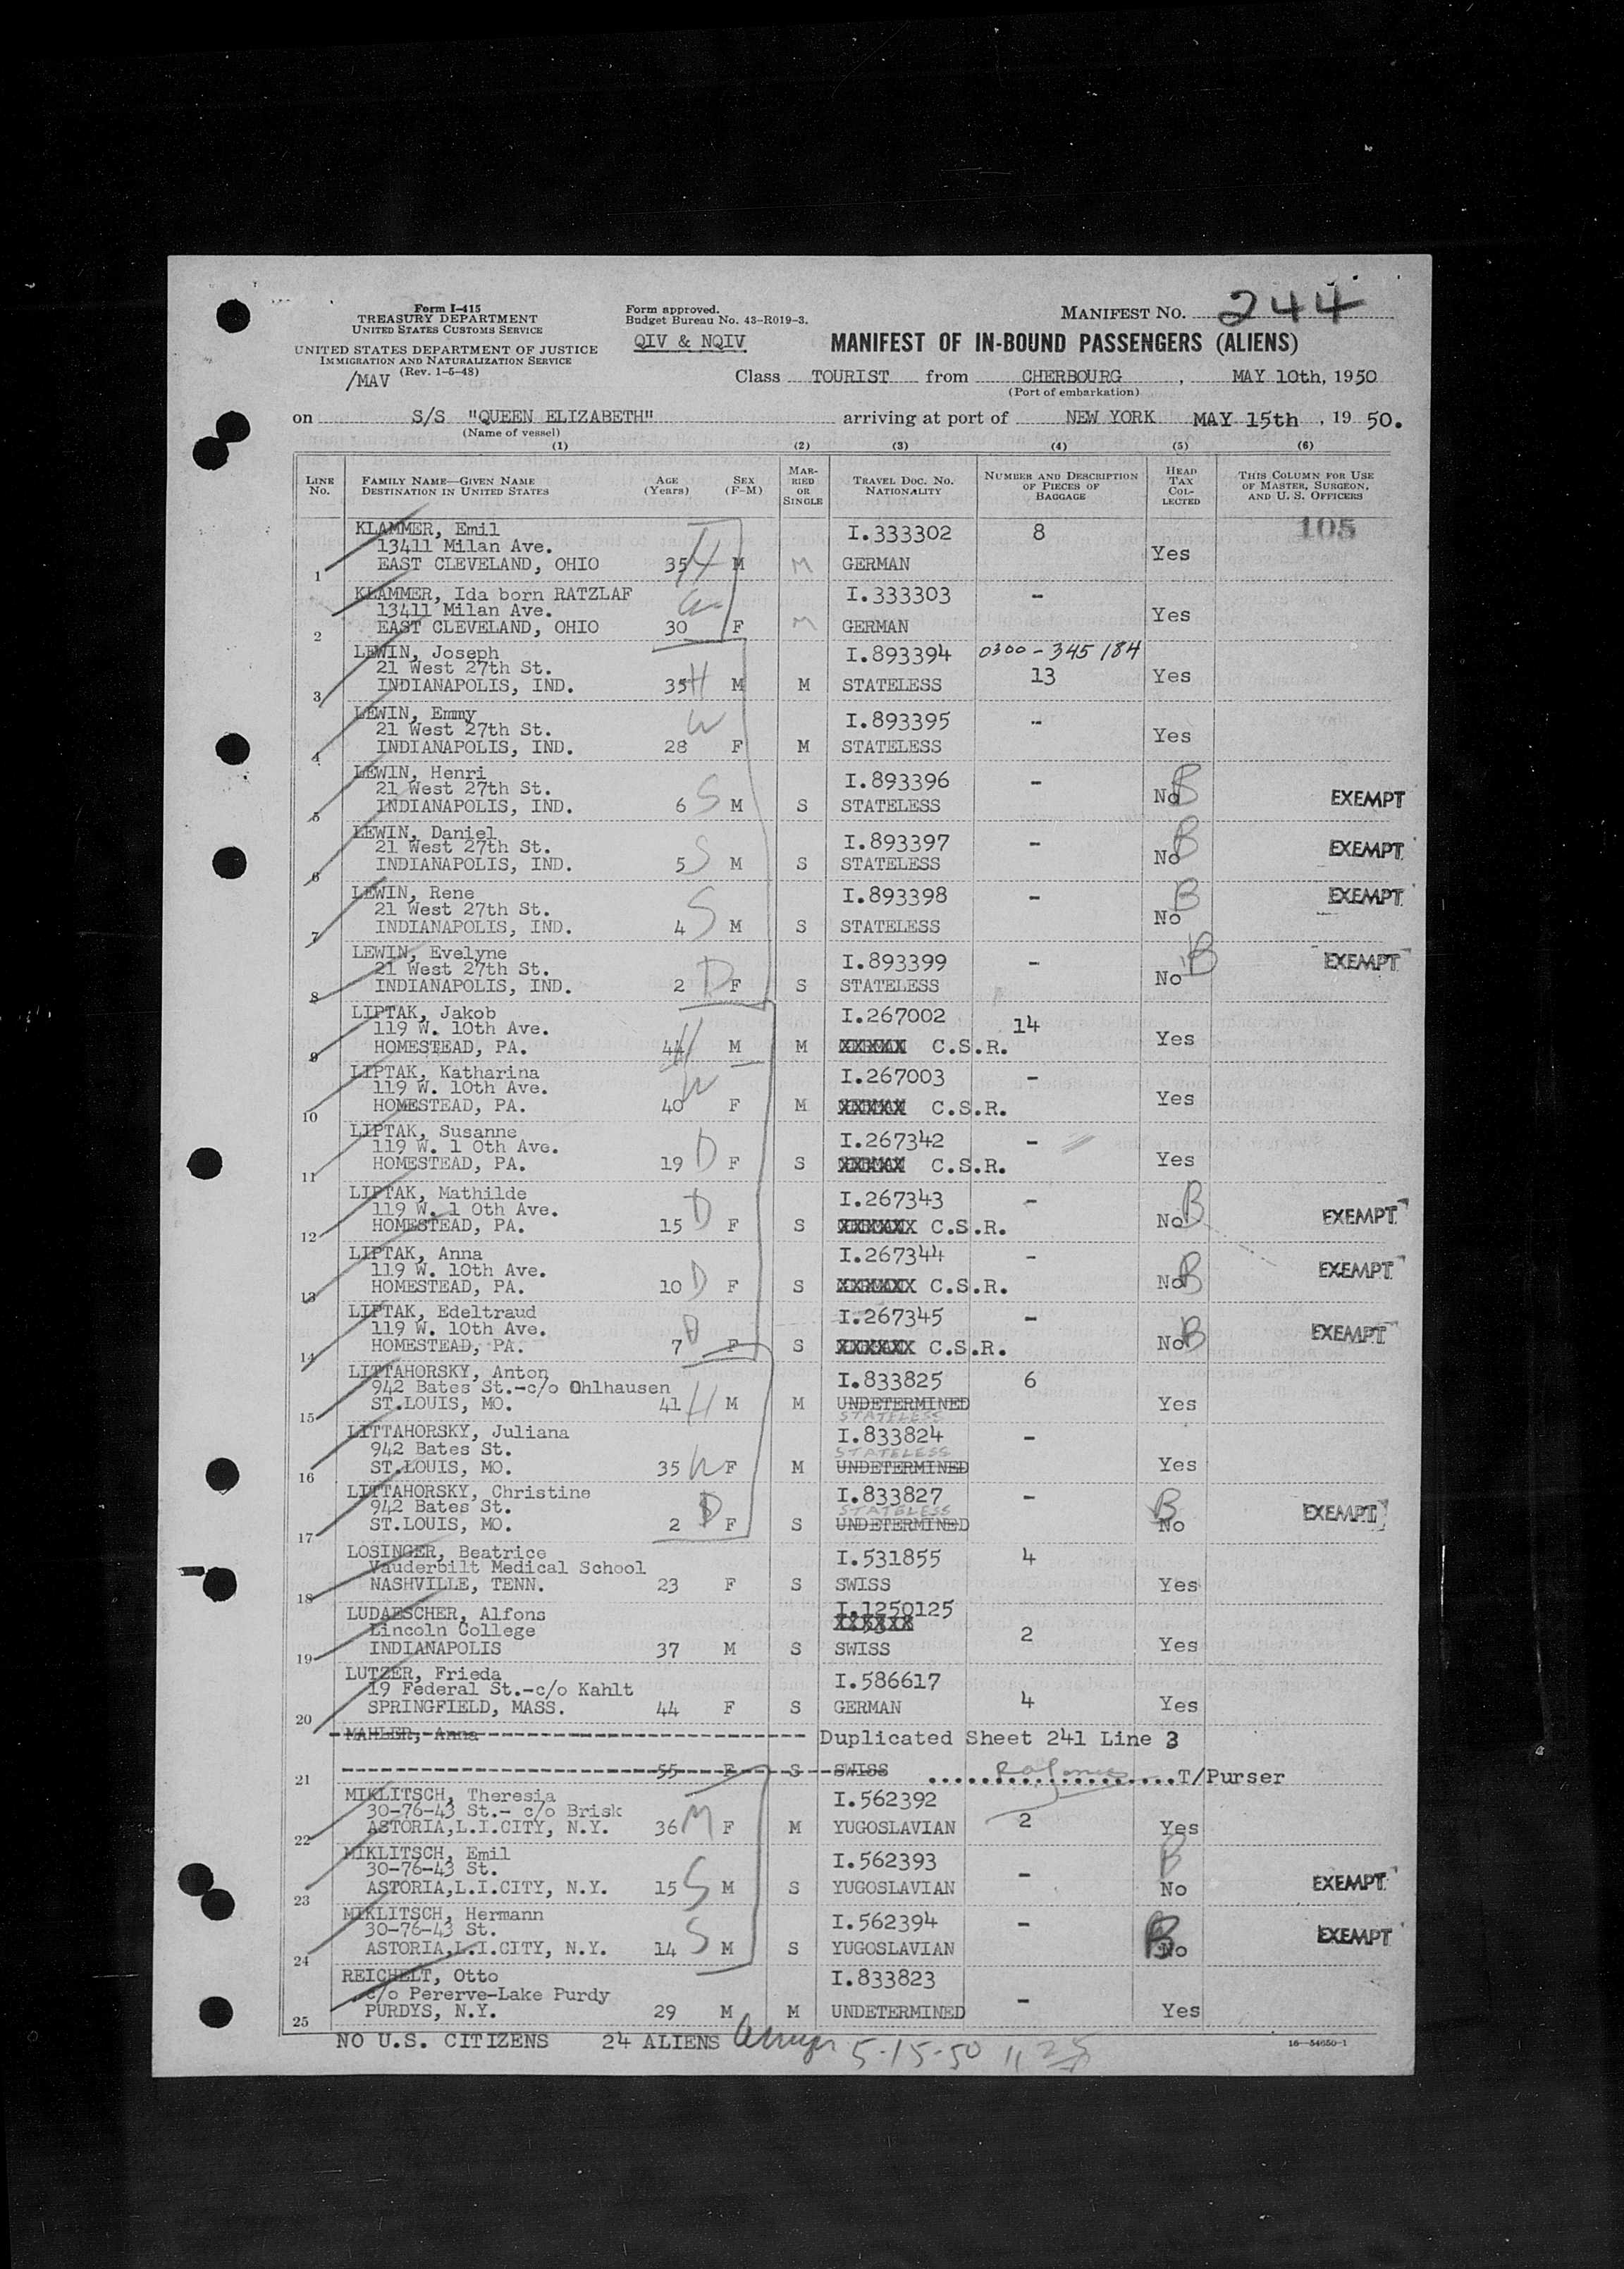 Form I-415
TREASURY DEPARTMENT
UNITED STATES CUSTOMS SERVICE
UNITED STATES DEPARTMENT OF JUSTICE
IMMIGRATION AND NATURALIZATION SERVICE
(Rev. 1-5-48)
/MAV
Form approved.
Budget Bureau No. 43-R019-3.
QIV & NQIV
MANIFEST NO. 244
MANIFEST OF IN-BOUND PASSENGERS (ALIENS)
Class TOURIST from CHERBOURG, MAY 10th, 1950
(Port of embarkation)
on S/S "QUEEN ELIZABETH" arriving at port of NEW YORK MAY 15th, 1950.
(Name of vessel)
(1) (2) (3) (4) (5) (6)
LINE No. FAMILY NAME—GIVEN NAME DESTINATION IN UNITED STATES AGE (Years) SEX (F-M) MARRIED OR SINGLE TRAVEL DOC. NO. NATIONALITY NUMBER AND DESCRIPTION OF PIECES OF BAGGAGE HEAD TAX COLLECTED THIS COLUMN FOR USE OF MASTER, SURGEON, AND U. S. OFFICERS
KLAMMER, Emil I.333302 8 105
13411 Milan Ave. Yes
1 EAST CLEVELAND, OHIO 35 H M M GERMAN
KLAMMER, Ida born RATZLAF I.333303 -
13411 Milan Ave. W Yes
2 EAST CLEVELAND, OHIO 30 F M GERMAN
LEWIN, Joseph I.893394 0300-345184
21 West 27th St. 13 Yes
3 INDIANAPOLIS, IND. 35 H M M STATELESS
LEWIN, Emmy W I.893395 -
21 West 27th St. Yes
4 INDIANAPOLIS, IND. 28 F M STATELESS
LEWIN, Henri I.893396 - B
21 West 27th St. No EXEMPT
5 INDIANAPOLIS, IND. 6 S M S STATELESS
LEWIN, Daniel I.893397 - B
21 West 27th St. No EXEMPT
6 INDIANAPOLIS, IND. 5 S M S STATELESS
LEWIN, Rene I.893398 - B EXEMPT
21 West 27th St. No
7 INDIANAPOLIS, IND. 4 S M S STATELESS
LEWIN, Evelyne I.893399 - B EXEMPT
21 West 27th St. No
8 INDIANAPOLIS, IND. 2 D F S STATELESS
LIPTAK, Jakob I.267002 14
119 W. 10th Ave. Yes
9 HOMESTEAD, PA. 44 H M M XXXXXX C.S.R.
LIPTAK, Katharina W I.267003 -
119 W. 10th Ave. Yes
10 HOMESTEAD, PA. 40 F M XXXXXX C.S.R.
LIPTAK, Susanne I.267342 -
119 W. 1 0th Ave. Yes
11 HOMESTEAD, PA. 19 D F S XXXXXX C.S.R.
LIPTAK, Mathilde I.267343 - B
119 W. 1 0th Ave. No EXEMPT
12 HOMESTEAD, PA. 15 D F S XXXXXXX C.S.R.
LIPTAK, Anna I.267344 - EXEMPT
119 W. 10th Ave. No B
13 HOMESTEAD, PA. 10 D F S XXXXXXX C.S.R.
LIPTAK, Edeltraud I.267345 - EXEMPT
119 W. 10th Ave. D No B
14 HOMESTEAD, PA. 7 F S XXXXXXX C.S.R.
LITTAHORSKY, Anton I.833825 6
942 Bates St.-c/o Ohlhausen
15 ST.LOUIS, MO. 41 H M M UNDETERMINED Yes
STATELESS
LITTAHORSKY, Juliana I.833824 -
942 Bates St. STATELESS
16 ST.LOUIS, MO. 35 W F M UNDETERMINED Yes
LITTAHORSKY, Christine I.833827 - B
942 Bates St. STATELESS EXEMPT
17 ST.LOUIS, MO. 2 D F S UNDETERMINED No
LOSINGER, Beatrice I.531855 4
Vauderbilt Medical School
18 NASHVILLE, TENN. 23 F S SWISS Yes
LUDAESCHER, Alfons I.1250125
Lincoln College XXXXXX 2
19 INDIANAPOLIS 37 M S SWISS Yes
LUTZER, Frieda I.586617
19 Federal St.-c/o Kahlt
20 SPRINGFIELD, MASS. 44 F S GERMAN 4 Yes
MAHLER, Anna Duplicated Sheet 241 Line 3
21 55 F S SWISS T/Purser
MIKLITSCH, Theresia I.562392
30-76-43 St.- c/o Brisk
22 ASTORIA,L.I.CITY, N.Y. 36 M F M YUGOSLAVIAN 2 Yes
MIKLITSCH, Emil I.562393 B
30-76-43 St. -
23 ASTORIA,L.I.CITY, N.Y. 15 S M S YUGOSLAVIAN No EXEMPT
MIKLITSCH, Hermann I.562394 -
30-76-43 St. B EXEMPT
24 ASTORIA,L.I.CITY, N.Y. 14 S M S YUGOSLAVIAN No
REICHELT, Otto I.833823
c/o Pererve-Lake Purdy -
25 PURDYS, N.Y. 29 M M UNDETERMINED Yes
NO U.S. CITIZENS 24 ALIENS 5-15-50
16—54650-1